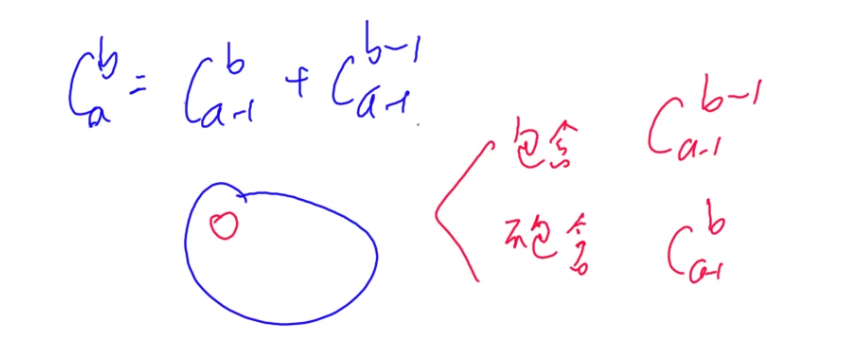 C_a^b = C_{a-1}^b + C_{a-1}^{b-1}
包含 C_{a-1}^{b-1}
不包含 C_{a-1}^b